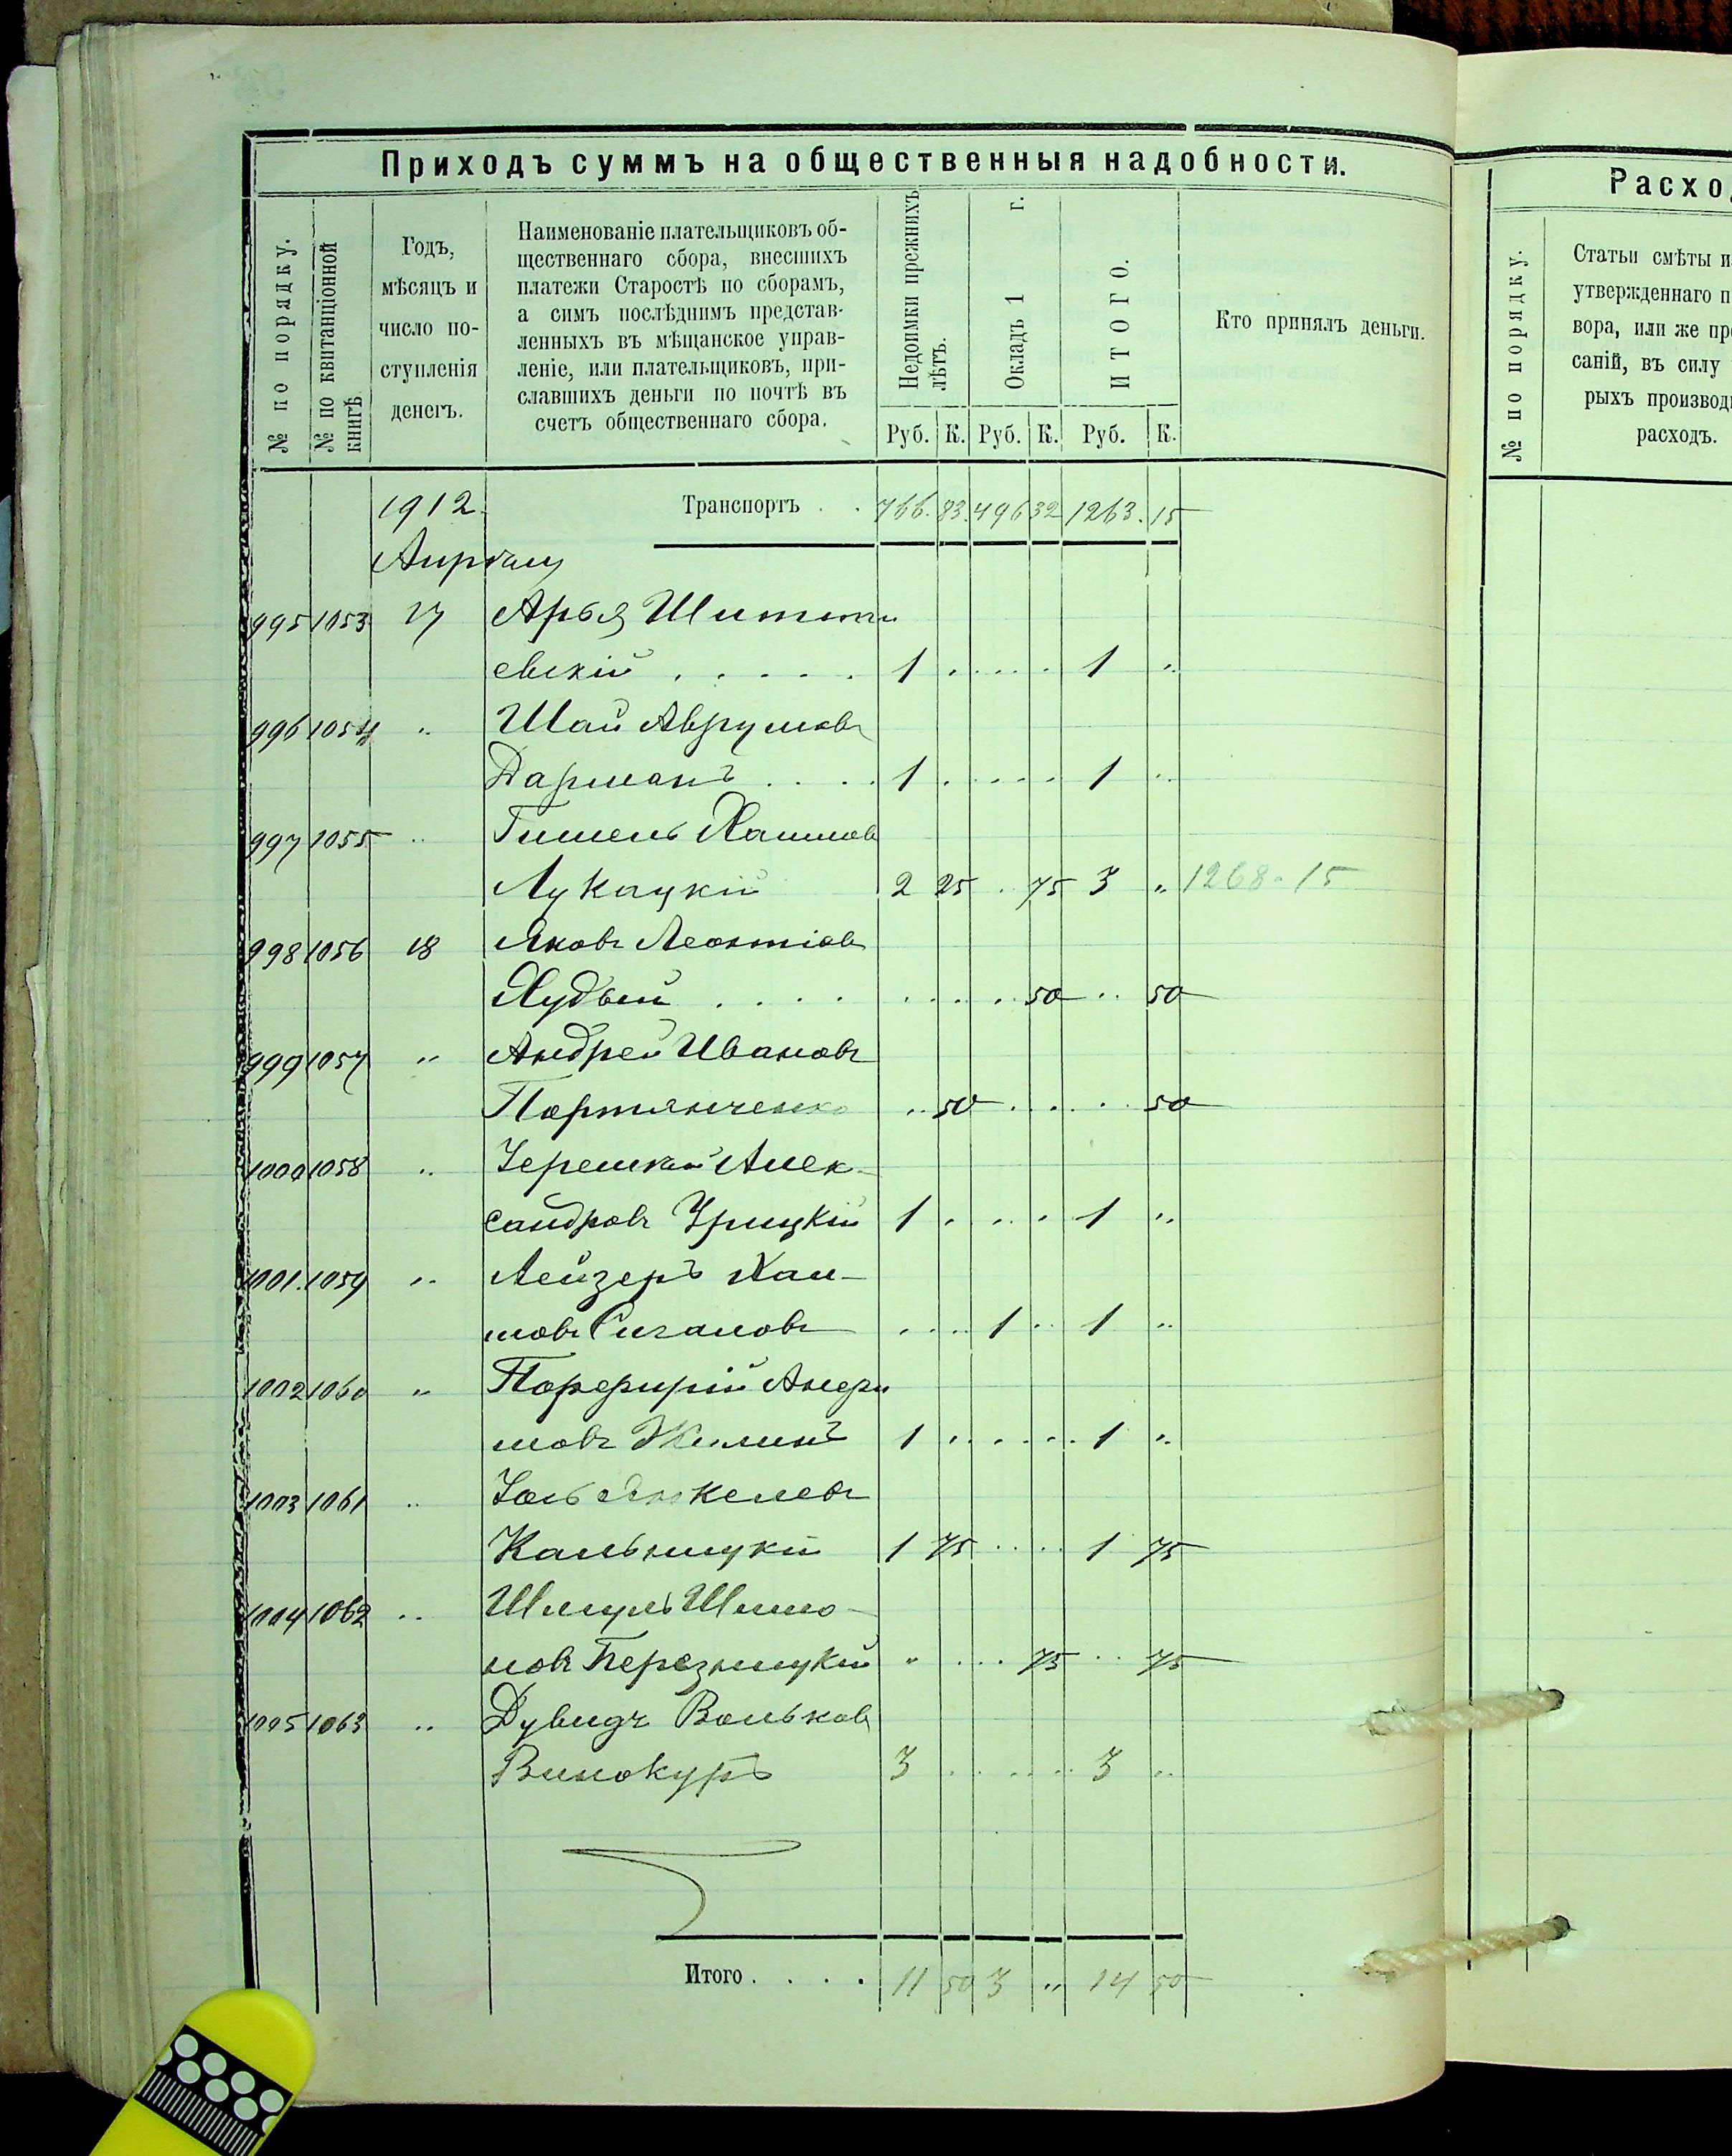 Приходъ суммъ на общественныя надобности.
№ по порядку.
№ по квитанціонной книгѣ
Годъ,
мѣсяцъ и
число по-
ступленія
денегъ.
Наименованіе плательщиковъ об-
щественнаго сбора, внесшихъ
платежи Старостѣ по сборамъ,
а симъ послѣднимъ представ-
ленныхъ въ мѣщанское управ-
леніе, или плательщиковъ, при-
славшихъ деньги по почтѣ въ
счетъ общественнаго сбора.
Недоимки прежнихъ лѣтъ.
Окладъ 1 г.
ИТОГО.
Кто принялъ деньги.
Руб. К. Руб. К. Руб. К.
1912. Транспортъ . . 766. 83. 496 32 1263. 15
Апрѣль
995 1053 27 Арья
евскій . . . . . 1 . . . . . 1 "
996 1054 " Шая Аврумовъ
Дарманъ . . . . 1 . . . . . 1 "
997 1055 " Гишель Хаимов
Лукацкій 2 25 . 75 3 " 1268-15
998 1056 28 Яковъ Леонтіев
Худый . . . . . . . . 50 . . 50
999 1057 " Андрей Ивановъ
Портянченко . . 50 . . . . 50
1000 1058 " Алек-
сандровъ Урицкій 1 . . . . 1 "
1001. 1059 " Лейзеръ Хаи-
мовъ Сигаловъ . . . . 1 . . 1 "
1002 1060 " Порфирій
мовъ Жилинъ 1 . . . . . 1 "
1003 1061 " Янкелевъ
Кальницкій 1 75 . . . . 1 75
1004 1062 " Шмуль Шимо-
новъ Березницкій " . . . 75 . . 75
1005 1063 " Дувидъ Вольков
Винокуръ 3 . . . . . . 3 "
Итого . . . . 11 50 3 " 14 50
Расхо
№ по порядку.
Статьи смѣты и
утвержденнаго п
вора, или же пр
саній, въ силу
рыхъ производ
расходъ.